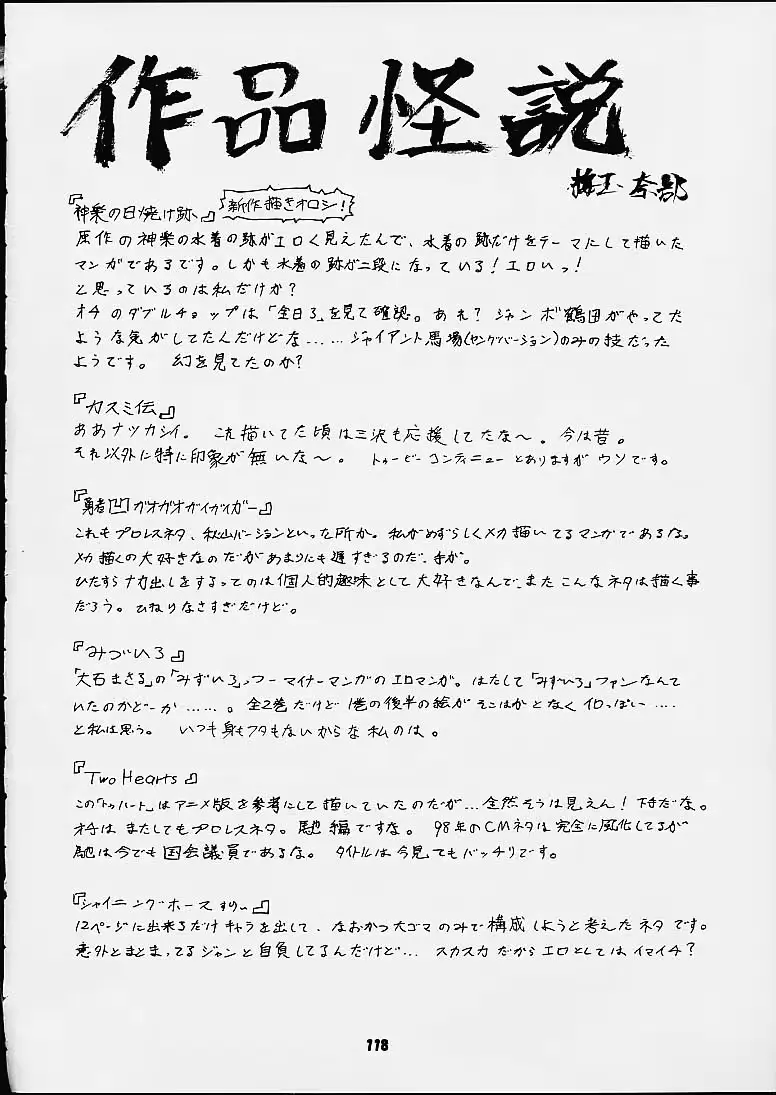 作品怪説
『神楽の日焼け跡』 新作描きオロシ!
原作の神楽の水着の跡がエロく見えたんで、水着の跡だけをテーマにして描いた
マンガであるです。しかも水着の跡が二段になっている!エロいっ!
と思っているのは私だけか?
オチのダブルチョップは「全日ろ」を見て確認。あれ? ジャンボ鶴田がやってた
ような気がしてたんだけどな……ジャイアント馬場(ヤングバージョン)のみの技だった
ようです。 幻を見てたのか?
『カスミ伝』
ああナツカシイ。 これ描いてた頃は三沢も応援してたな～。今は昔。
それ以外に特に印象が無いな～。 トゥービーコンティニューとありますがウソです。
『勇者凹ガオガオガイガイガー』
これもプロレスネタ、秋山バージョンといった所か。私がめずらしくメカ描いてるマンガであるな。
メカ描くの大好きなのだがあまりにも遅すぎるのだ、手が。
ひたすらナカ出しをするってのは個人的趣味として大好きなんで、またこんなネタは描く事
だろう。ひねりなさすぎだけど。
『みづいろ』
「大石まさる」の「みずいろ」っつーマイナーマンガのエロマンガ。はたして「みずいろ」ファンなんて
いたのかどーか……。全2巻だけど1巻の後半の絵がそこはかとなくイロっぽい……
と私は思う。 いつも身もフタもないからな私のは。
『Two Hearts』
この「トゥハート」はアニメ版を参考にして描いていたのだが…全然そうは見えん!下手だな。
オチはまたしてもプロレスネタ。馳編ですな。 98年のCMネタは完全に風化してるが
馳は今でも国会議員であるな。 タイトルは今見てもバッチリです。
『シャイニングホース
12ページに出来るだけキャラを出して、なおかつ大ゴマのみで構成しようと考えたネタです。
意外とまとまってるジャンと自負してるんだけど… スカスカだからエロとしてはイマイチ?
118